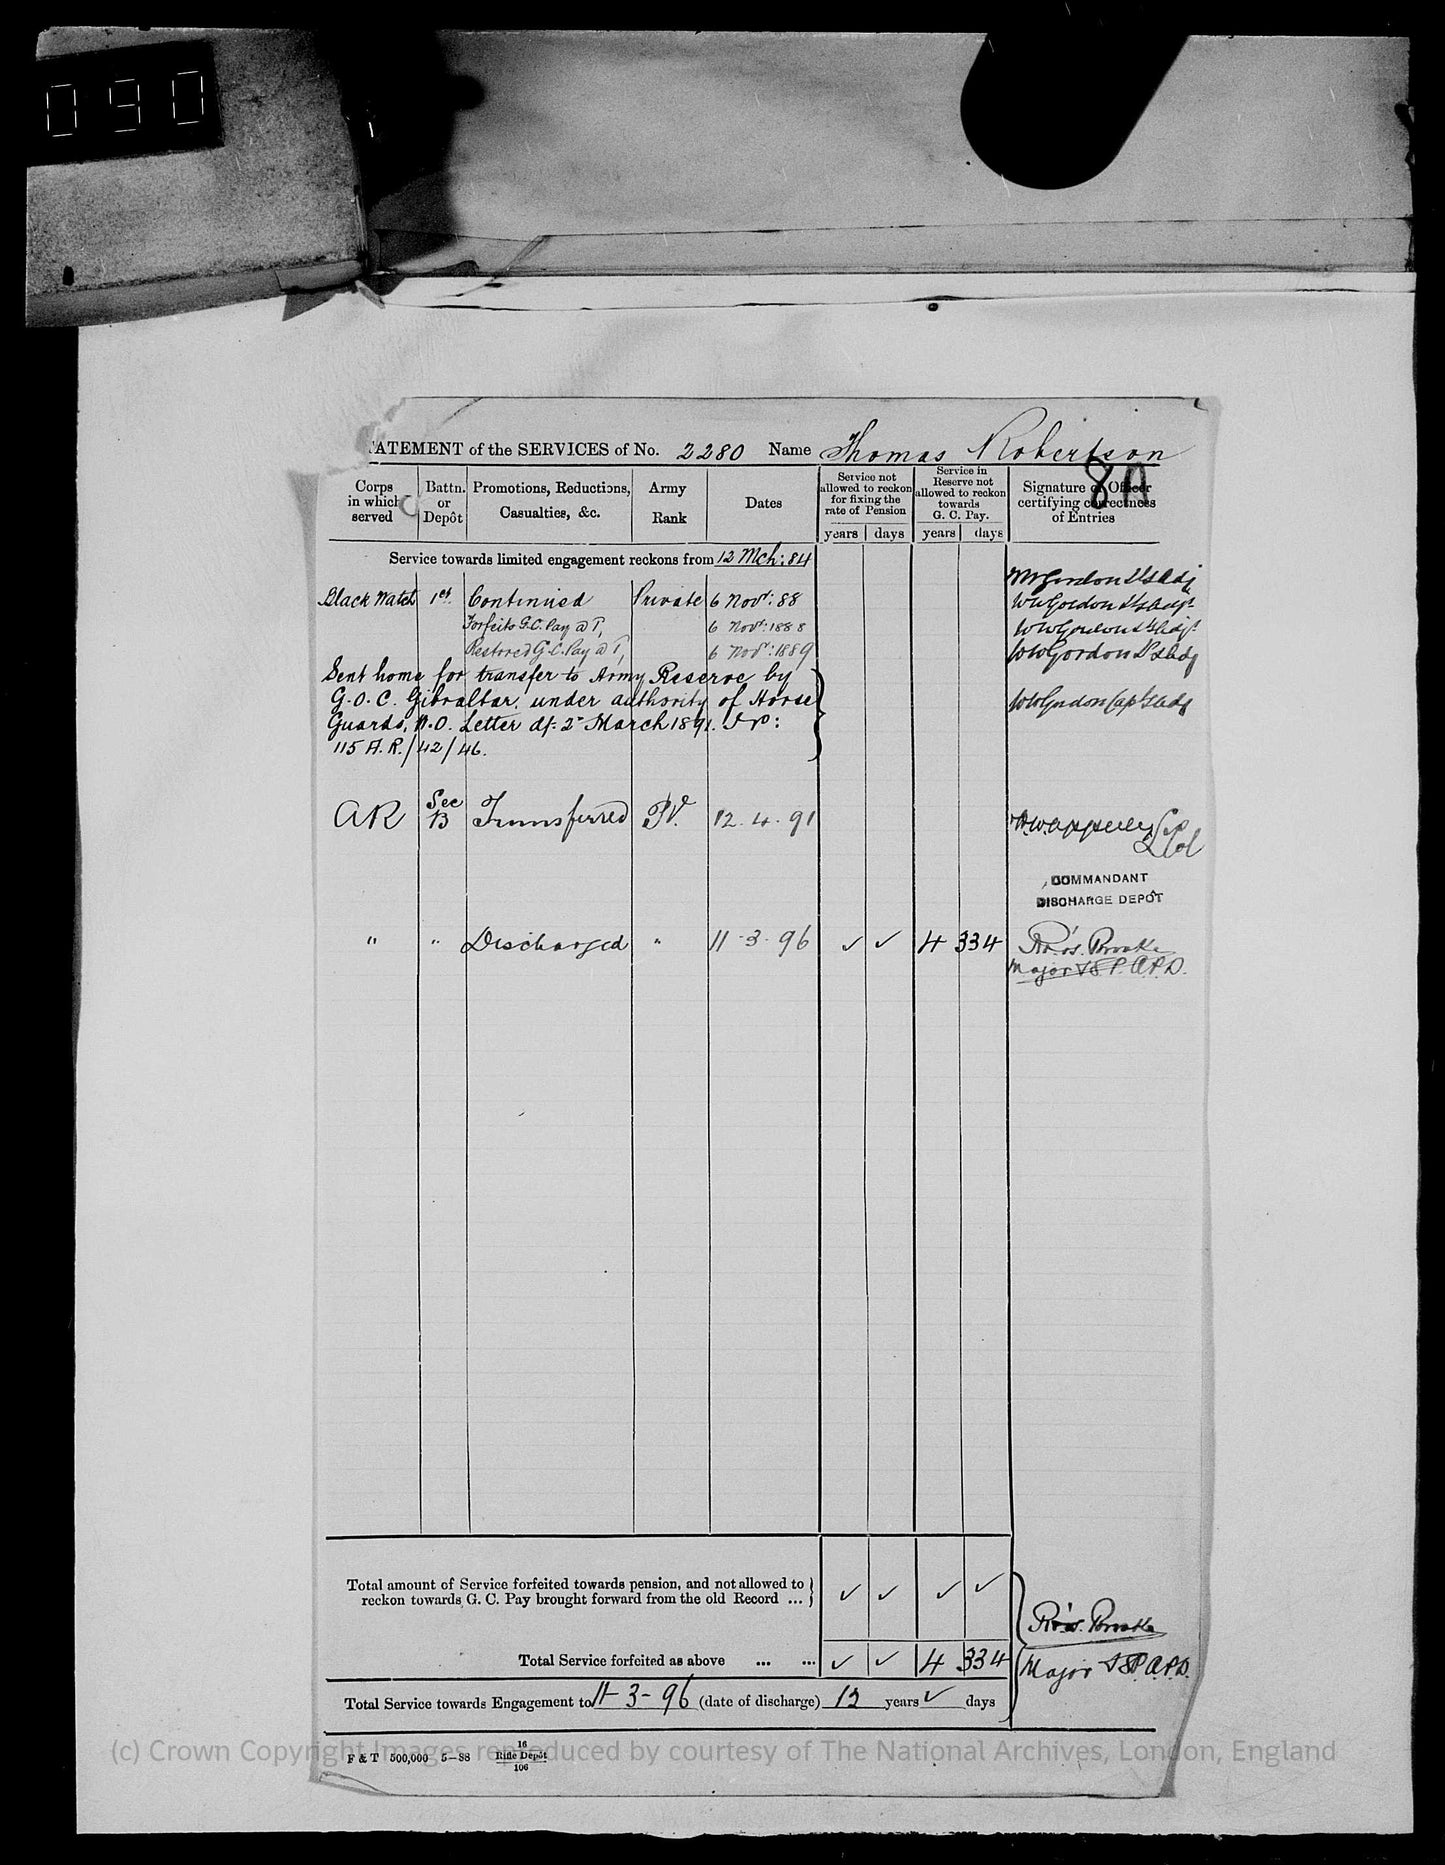 090
ATEMENT of the SERVICES of No. 2280 Name Thomas Robertson
8A
Corps in which served | Battn. or Depôt | Promotions, Reductions, Casualties, &c. | Army Rank | Dates | Service not allowed to reckon for fixing the rate of Pension | Service in Reserve not allowed to reckon towards G. C. Pay. | Signature of Officer certifying correctness of Entries
years | days | years | days
Service towards limited engagement reckons from 12 Mch: 84
Black Watch 1st Continued Private 6 Novr: 88 WWGordon Lt & Adjt
Forfeits G.C. Pay @ 1, 6 Novr: 1888 WWGordon Lt & Adjt
Restored G.C. Pay @ 1, 6 Novr: 1889 WWGordon Lt & Adj
Sent home for transfer to Army Reserve by
G.O.C. Gibraltar, under authority of Horse WWGordon Capt & Adj
Guards, W.O. Letter dt: 2d March 1891. No:
115 A.R./42/46.
AR Sec B Transferred Pt. 12.4.91
Lt Col
COMMANDANT
DISCHARGE DEPÔT
" " Discharged " 11-3-96 ✓ ✓ 4 334
Major & S.P. A.P.D.
Total amount of Service forfeited towards pension, and not allowed to
reckon towards G. C. Pay brought forward from the old Record ... ✓ ✓ ✓ ✓
Total Service forfeited as above ... ... ✓ ✓ 4 334 Major & S.P. A.P.D.
Total Service towards Engagement to 11-3-96 (date of discharge) 12 years ✓ days
F & T 500,000 5—88 16 Rifle Depôt 106
(c) Crown Copyright Images reproduced by courtesy of The National Archives, London, England